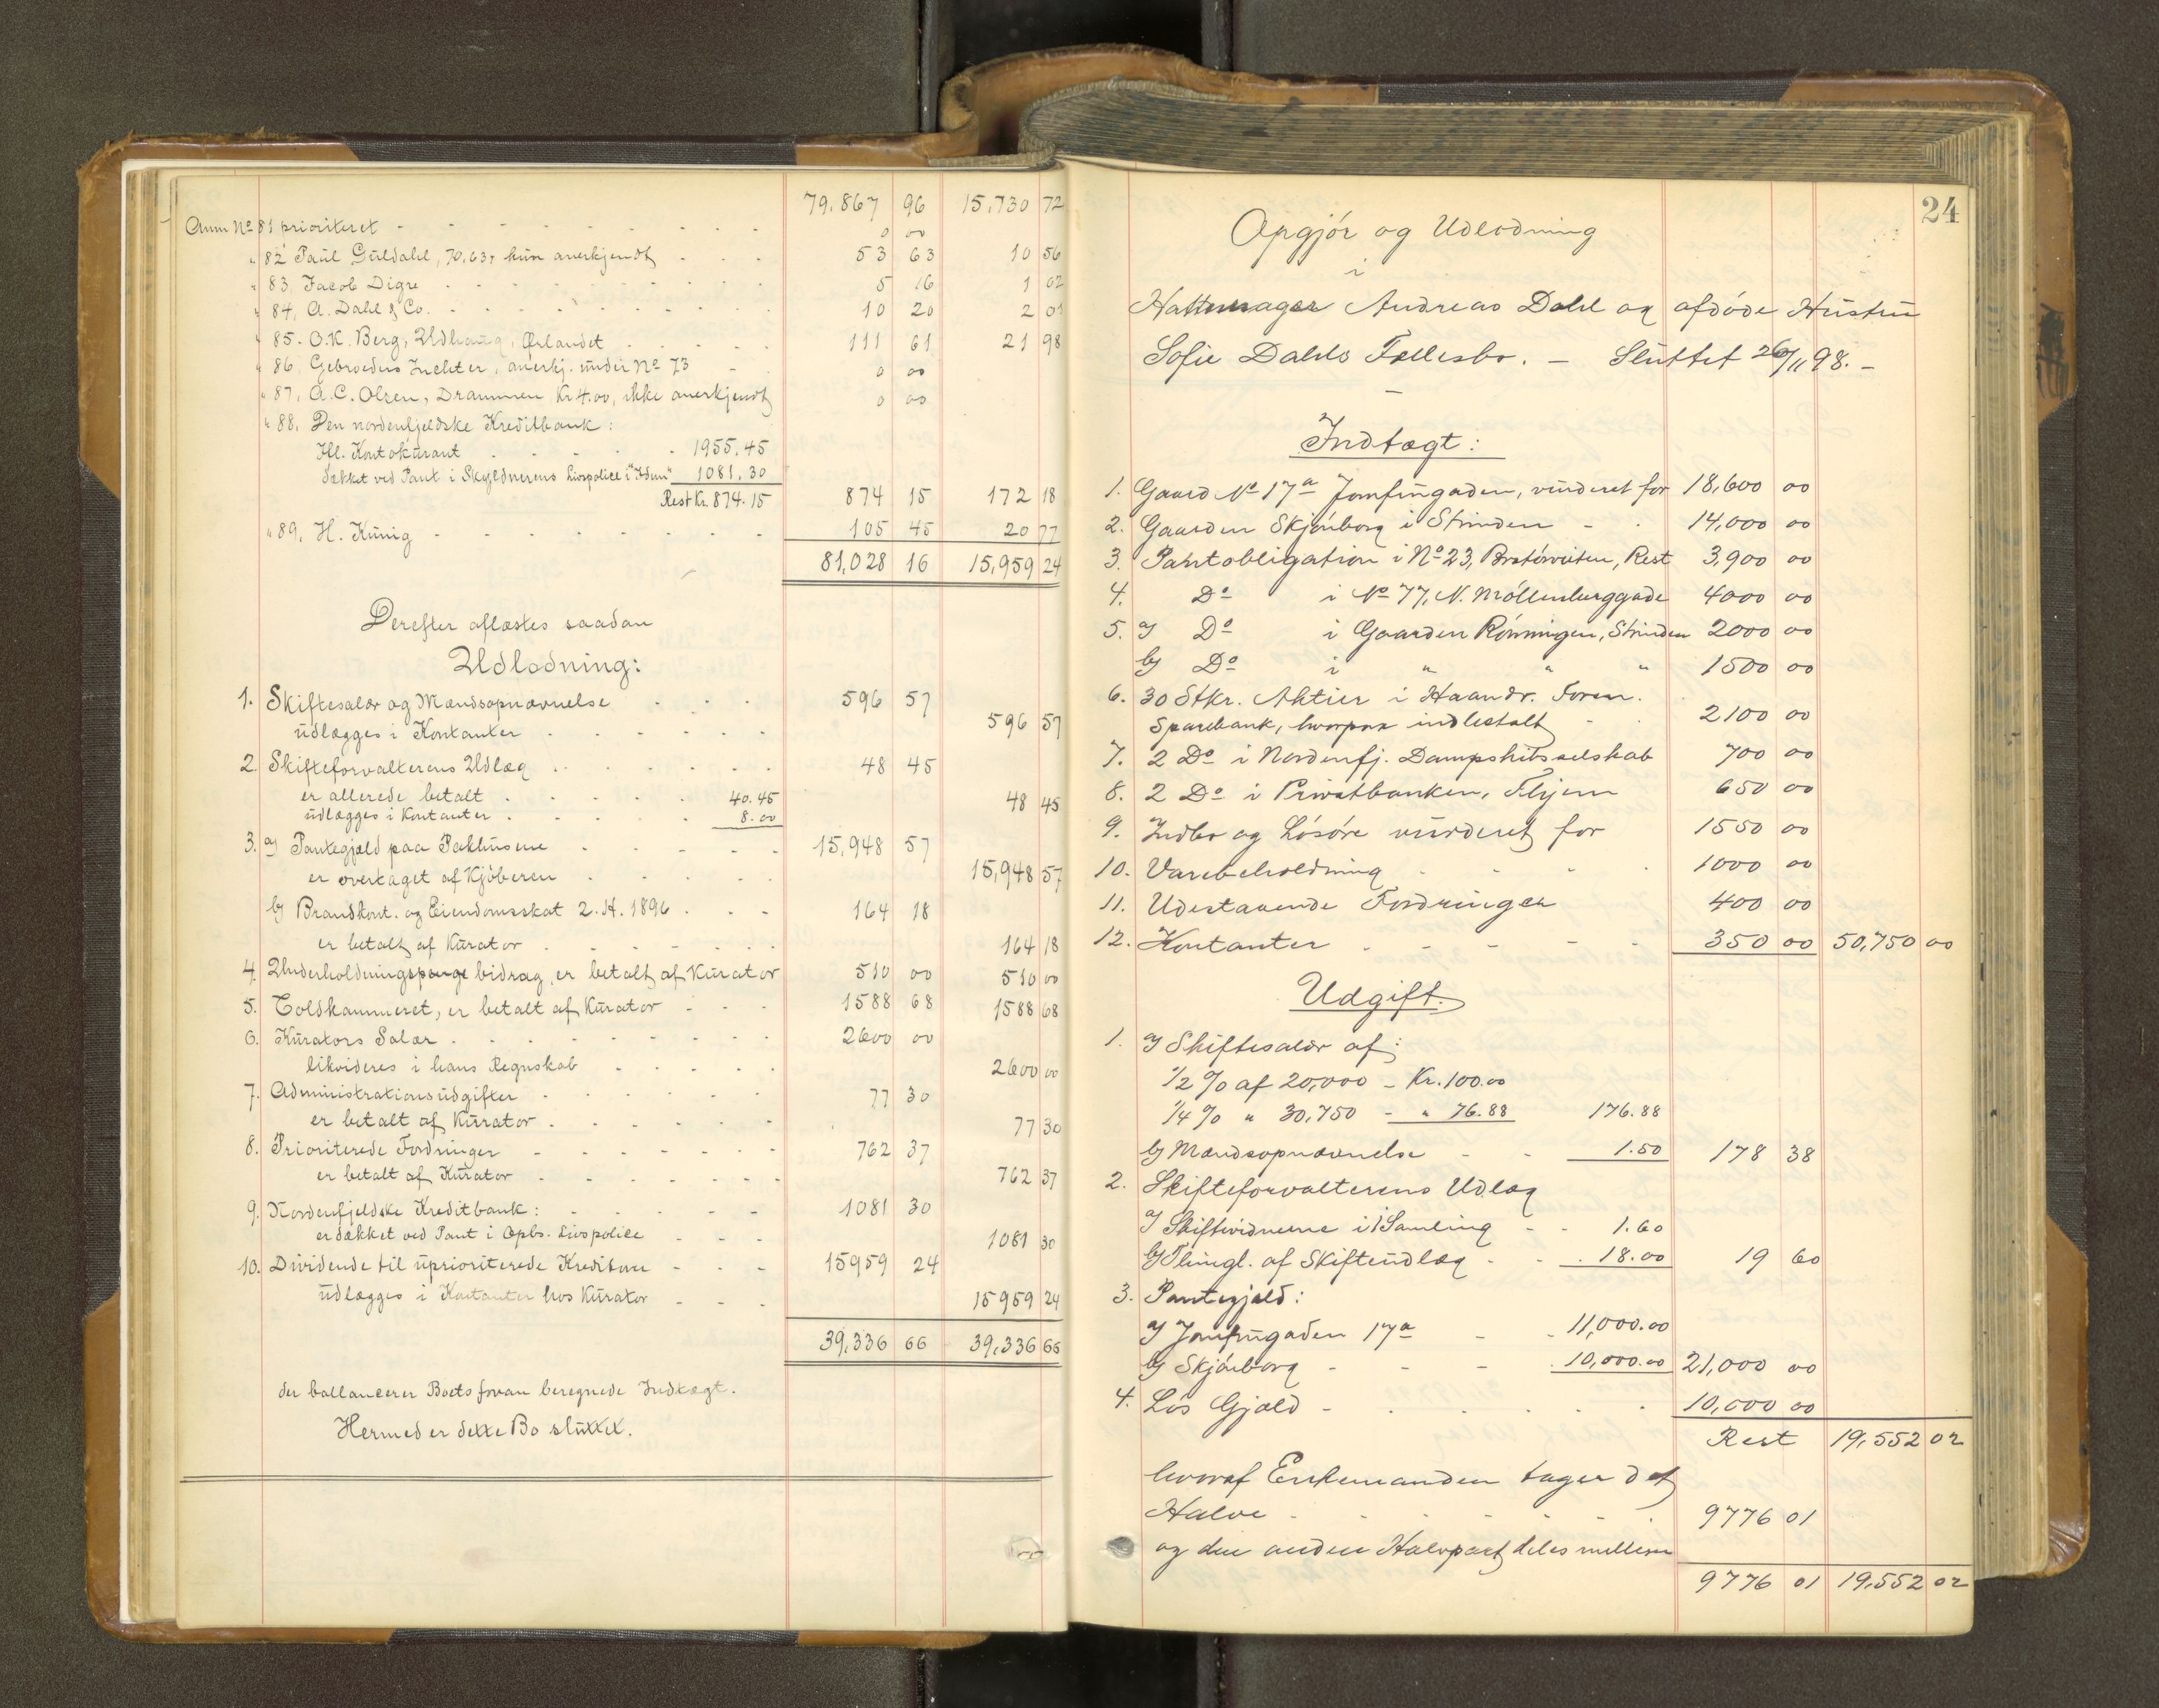 79,867 96 15,730 72
Anm No 81 prioriteret - - - 0 00
" 82 Paul Guldahl, 70,63, kun anerkjendt - - - 53 63 10 56
" 83, Jacob Digre - - - 5 16 1 02
" 84, A. Dahl & Co. - - - 10 20 2 01
" 85. O.K. Berg, Udhaug, Ørlandet - - - 111 61 21 98
" 86, Gebroeders Juchter, anerkj. under No 73 - 0 00
" 87, A.C. Olsen, Drammen Kr 4.00, ikke anerkjendt 0 00
" 88, Den nordenfjeldske Kreditbank:
Ifl. Kontokurant - - - 1955.45
dækket ved Pant i Skyldnerens Livspolice i "Idun" 1081.30
Rest Kr. 874.15 874 15 172 18
" 89, H. Künig - - - 105 45 20 77
81,028 16 15,959 24
Derefter aflæstes saadan
Udlodning:
1. Skiftesalær og Mændsopnævnelse - - - 596 57
udlægges i Kontanter - - - 596 57
2. Skifteforvalterens Udlæg - - - 48 45
er allerede betalt - - - 40.45 48 45
udlægges i Kontanter - - - 8.00
3. a) Pantegjæld paa Pakhusene - - - 15,948 57
er overtaget af Kjøberen - - - 15,948 57
b) Brandkont. og Eiendomsskat 2. H. 1896 - - - 164 18
er betalt af Kurator - - - 164 18
4. Underholdningspenge bidrag, er betalt af Kurator 510 00 510 00
5. Toldkammeret, er betalt af Kurator - - - 1588 68 1588 68
6. Kurators Salær - - - 2600 00
likvideres i hans Regnskab - - - 2600 00
7. Administrationsudgifter - - - 77 30
er betalt af Kurator - - - 77 30
8. Prioriterede Fordringer - - - 762 37
er betalt af Kurator - - - 762 37
9. Nordenfjeldske Kreditbank: - - - 1081 30
er dækket ved Pant i Opbs. Livspolice - - - 1081 30
10. Dividende til uprioriterede Kreditorer - - - 15959 24
udlægges i Kontanter hos Kurator - - - 15959 24
39,336 66 39,336 66
der ballancerer Boets foran beregnede Indtægt.
Hermed er dette Bo sluttet.
24
Opgjör og Udlodning
i
Hattemager Andreas Dahl og afdöde Hustru
Sofie Dahls Fællesbo. - Sluttet 26/11 98. -
Indtægt:
1. Gaard No 17a Jomfrugaden, vurderet for 18,600 00
2. Gaarden Skjönborg i Strinden - - 14,000 00
3. Pantobligation i No 23, Bratörveiten, Rest 3,900 00
4. Do i No 77, N. Möllenberggade 4000 00
5. a) Do i Gaarden Rönningen, Strinden 2000 00
b) Do i " " " 1500 00
6. 30 Stkr. Aktier i Haandv. Foren.
Sparebank, hvorpaa indbetalt - - 2100 00
7. 2 Do i Nordenfj. Dampskibsselskab 700 00
8. 2 Do i Privatbanken, Thjem 650 00
9. Indbo og Lösöre vurderet for 1550 00
10. Varebeholdning - - - 1000 00
11. Udestaaende Fordringer 400 00
12. Kontanter - - - 350 00 50,750 00
Udgift.
1. a) Skiftesalær af:
1/2 % af 20,000 - Kr. 100.00
1/4 % " 30,750 - " 76.88 176.88
b) Mændsopnævnelse - - 1.50 178 38
2. Skifteforvalterens Udlæg
a) Skiftevidnerne i 1 Samling - - 1.60
b) Thingl. af Skifteudlæg - - 18.00 19 60
3. Pantegjæld:
a) Jomfrugaden 17a - - 11,000.00
b) Skjönborg - - - 10,000.00 21,000 00
4. Lös Gjæld - - - 10,000 00
Rest 19,552 02
hvoraf Enkemanden tager det
Halve - - - 9776 01
og den anden Halvpart deles mellem
9776 01 19,552 02